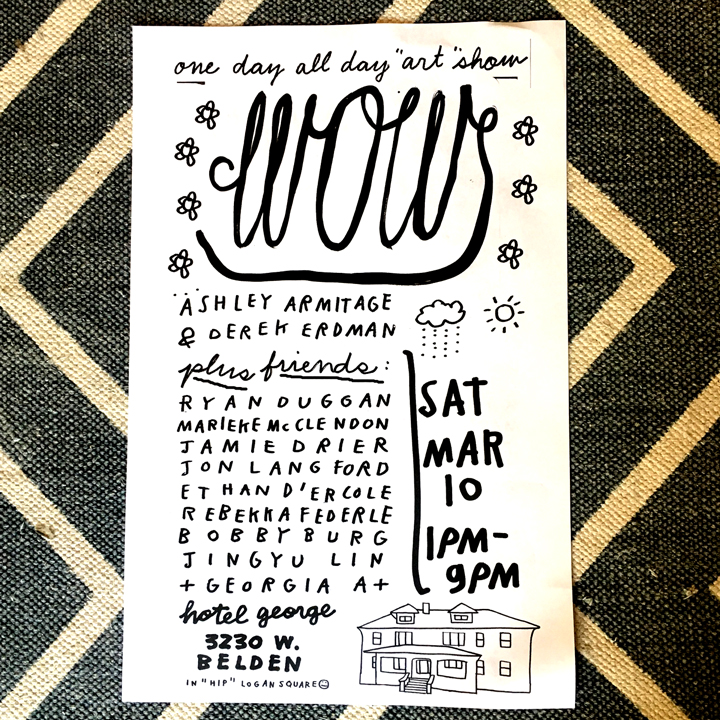 one day all day "art" show
WOW
ASHLEY ARMITAGE
& DEREK ERDMAN
plus friends:
RYAN DUGGAN
MARIEKE McCLENDON
JAMIE DRIER
JON LANGFORD
ETHAN D'ERCOLE
REBEKKA FEDERLE
BOBBY BURG
JINGYU LIN
+ GEORGIA A+
SAT
MAR
10
1PM-
9PM
hotel george
3230 W.
BELDEN
IN "HIP" LOGAN SQUARE